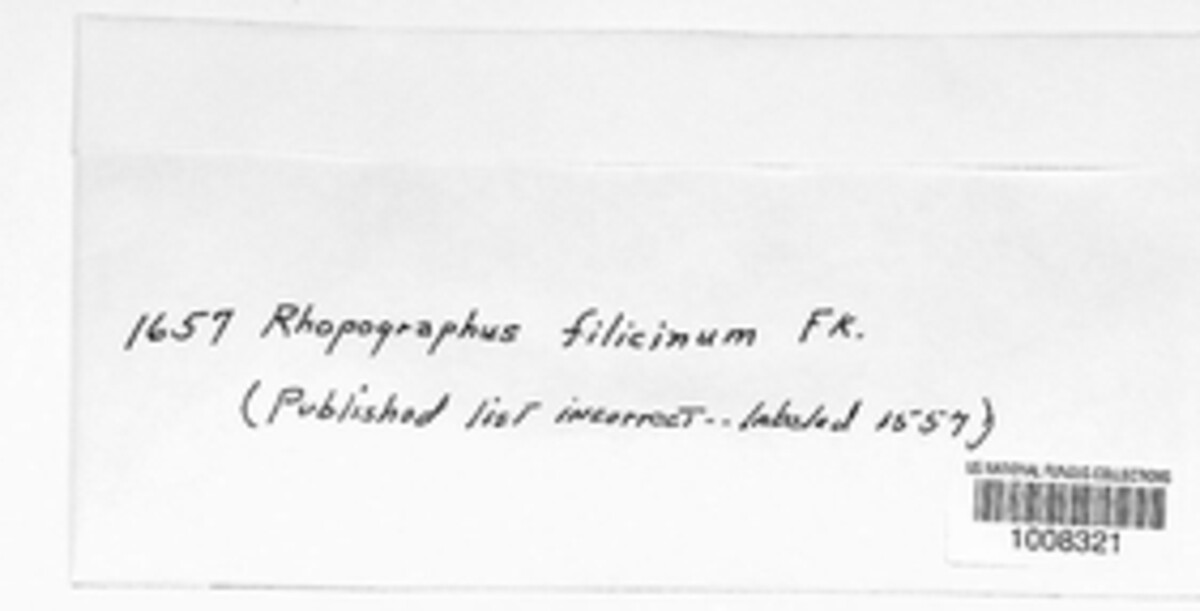 1657 Rhopographus filicinum FK.
(Published list incorrect-- labeled 1557)
US NATIONAL FUNGUS COLLECTIONS
1008321